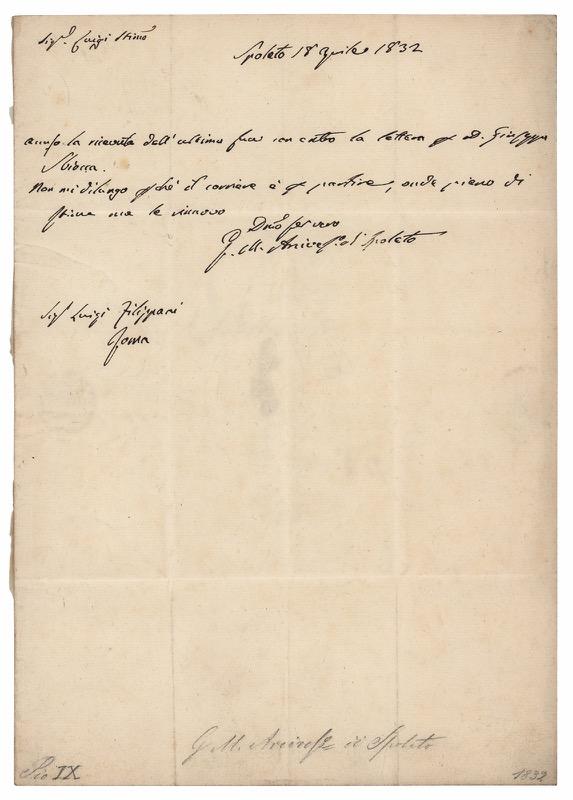 Sig.r Luigi Stimo
Spoleto 18 Aprile 1832
la ricevuta dell' ultima sua con entro la lettera p D. Giuseppe
Sbiocca.
Non mi dilungo p chè il corriere è p partire, onde pieno di
stima me le rinnovo
G. M. Arcives.o di Spoleto
Sig.r Luigi Filippani
Roma
G M. Arcives di Spoleto
Pio IX
1832